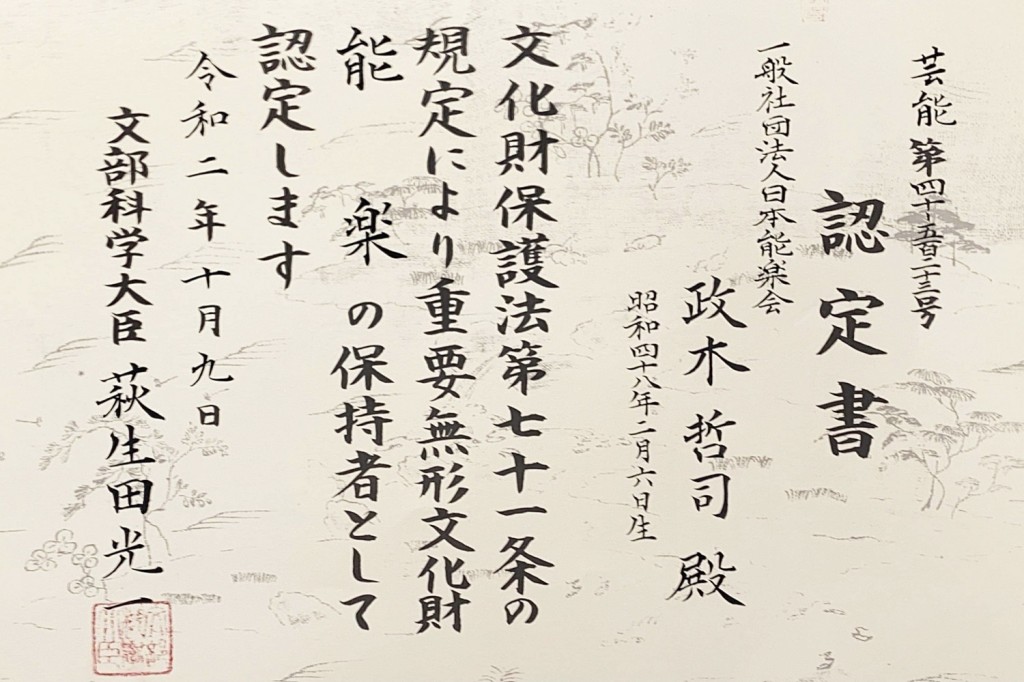 芸能第四十五百二十三号
認定書
一般社団法人日本能楽会
政木哲司殿
昭和四十八年二月六日生
文化財保護法第七十一条の
規定により重要無形文化財
能楽の保持者として
認定します
令和二年十月九日
文部科学大臣 萩生田光一